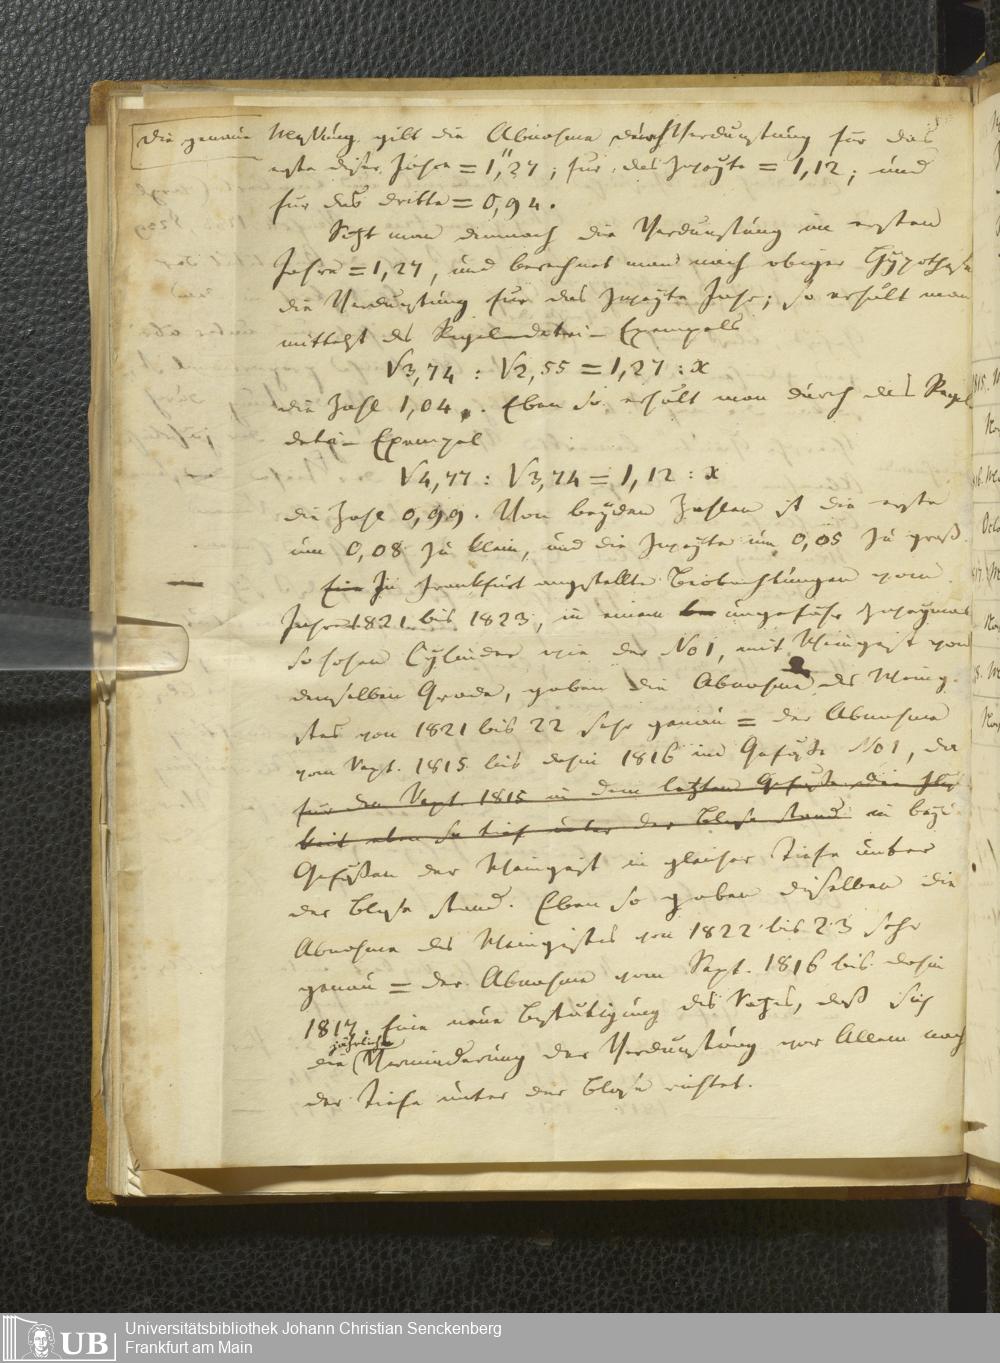 Die genaue Messung gibt die Abnahme durch Verdunstung für das
erste dieser Jahre = 1",27; für das zweyte = 1,12; und
für das dritte = 0,94.
Setzt man demnach die Verdunstung im ersten
Jahre = 1,27, und berechnet man nach obiger Hypothese
die Verdunstung für das zweyte Jahr; so erhält man
mittelst des Regel-detri- Exempels
√3,74 : √2,55 = 1,27 : x
die Zahl 1,04. Eben so erhält man durch das Regel
detri- Exempel
√4,77 : √3,74 = 1,12 : x
die Zahl 0,99. Von beyden Zahlen ist die erste
um 0,08 zu klein, und die zweyte um 0,05 zu groß.
Eine In Frankfurt angestellte Beobachtungen vom
Jahre 1821 bis 1823, in einem ungefähr zweymal
so hohen Cylinder wie der No 1, mit Weingeist von
demselben Grade, gaben die Abnahme des Weingei-
stes von 1821 bis 22 sehr genau = der Abnahme
vom Sept. 1815 bis dahin 1816 im Gefäße No 1, da
für den Sept. 1815 in dem letzten Gefäße die Flüs
keit eben so tief unter der Blase stand in beyden
Gefäßen der Weingeist in gleicher Tiefe unter
der Blase stand. Eben so gaben dieselben die
Abnahme des Weingeistes von 1822 bis 23 sehr
genau = der Abnahme vom Sept. 1816 bis dahin
1817. Eine neue Bestätigung des Satzes, daß sich
jährliche
die Verminderung der Verdunstung vor Allem nach
der Tiefe unter der Blase richtet.
Universitätsbibliothek Johann Christian Senckenberg
Frankfurt am Main
UB